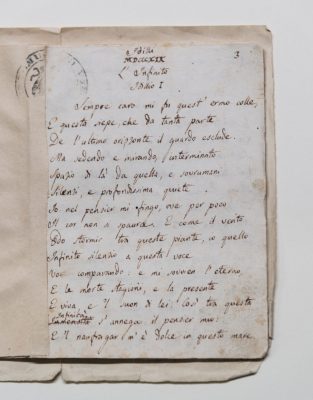 Idilli
MDCCCXIX
3
L'Infinito
Idillio I
Sempre caro mi fu quest'ermo colle,
E questa siepe, che da tanta parte
De l'ultimo orizzonte il guardo esclude.
Ma sedendo e mirando, interminato
Spazio di là da quella, e sovrumani
Silenzi, e profondissima quiete
Io nel pensier mi fingo, ove per poco
Il cor non si spaura. E come il vento
Odo stormir tra queste piante, io quello
Infinito silenzio a questa voce
Vo comparando: e mi sovvien l'eterno,
E le morte stagioni, e la presente
E viva, e 'l suon di lei. Così tra questa
Infinità
s'annega il pensier mio:
E 'l naufragar m'è dolce in questo mare.